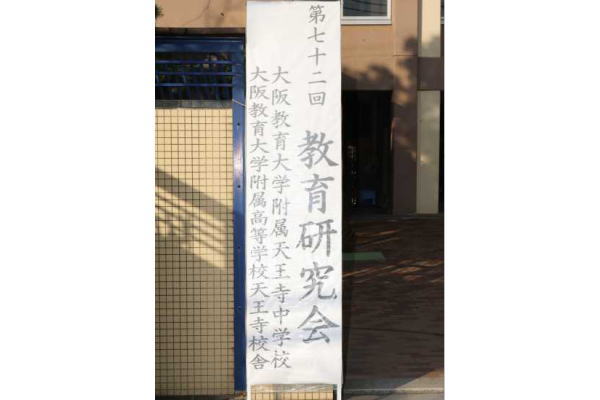 第七十二回 教育研究会
大阪教育大学附属天王寺中学校
大阪教育大学附属高等学校天王寺校舎